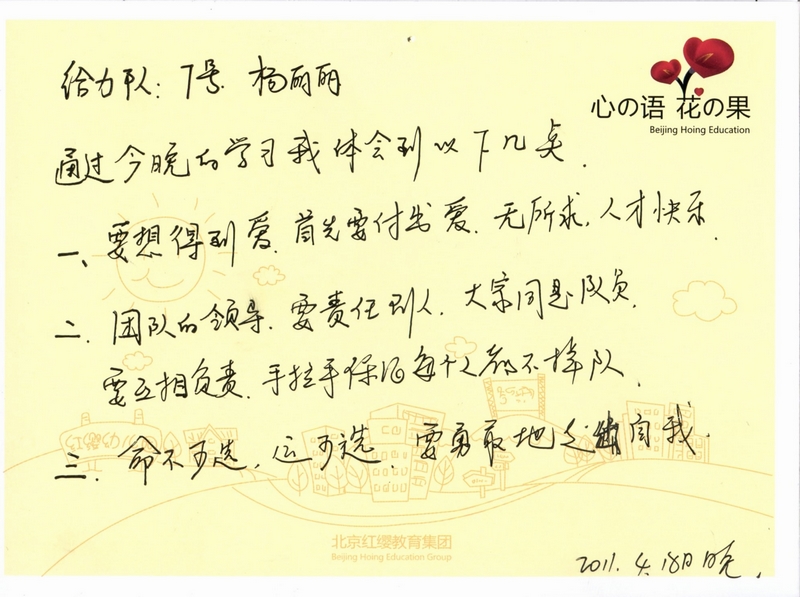 心の语 花の果
Beijing Hoing Education
给力队：7号 杨丽丽
通过今晚的学习我体会到以下几点.
一、要想得到爱.首先要付出爱.无所求,人才快乐.
二.团队的领导.要责任到人.大家同是队员.
要互相负责.手拉手保证每个人都不掉队.
三.命不可选,运可选.要勇敢地走出自我.
红缨幼儿
北京红缨教育集团
Beijing Hoing Education Group
2011.4.18日晚.